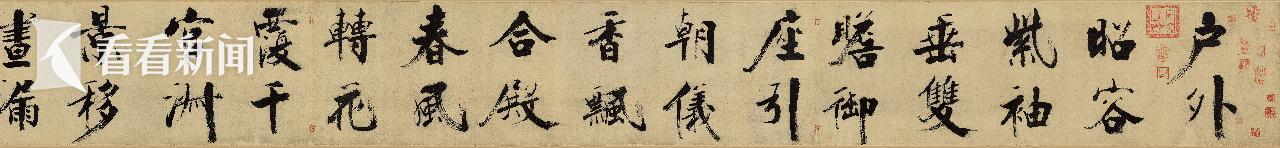 户外
昭容
紫袖
垂雙
瞻御
座引
朝儀
香飄
合殿
春風
轉花
覆千
官淑
景移
晝漏
看看新闻